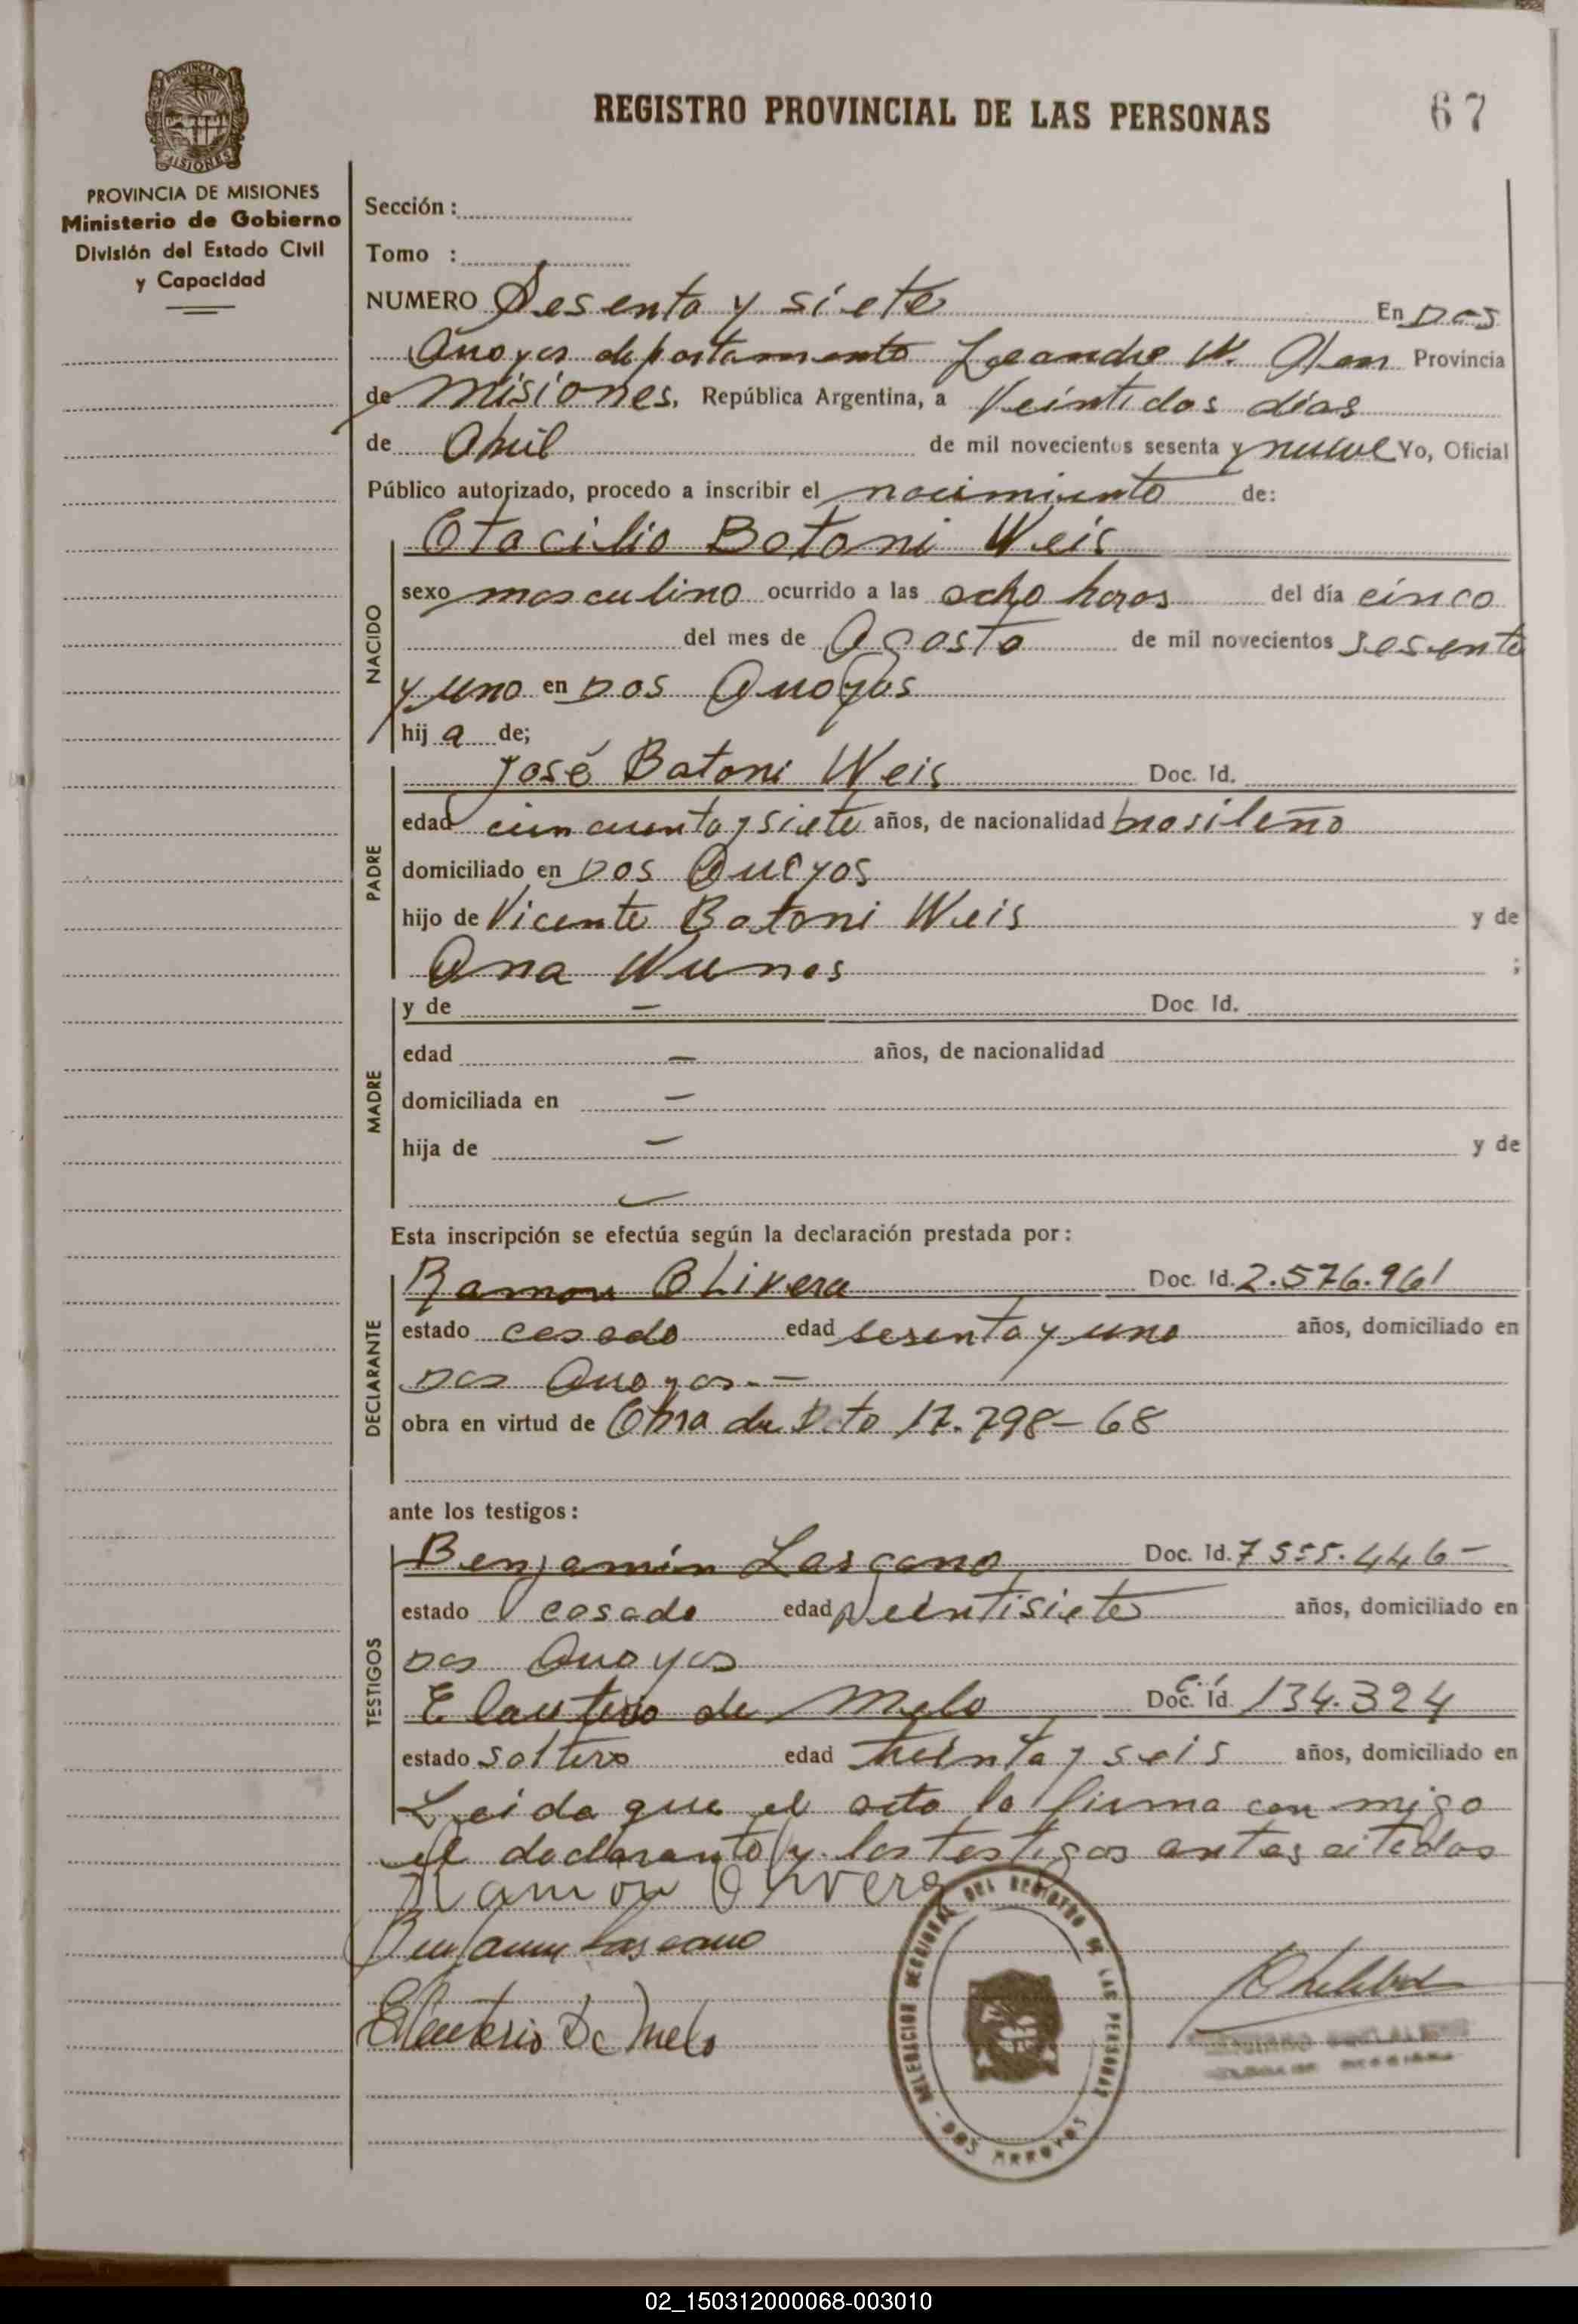 REGISTRO PROVINCIAL DE LAS PERSONAS
67
PROVINCIA DE MISIONES
PROVINCIA DE MISIONES
Ministerio de Gobierno
División del Estado Civil
y Capacidad
Sección :
Tomo :
NUMERO Sesenta y siete En Dos
Arroyos departamento Leandro N. Alem Provincia
de Misiones, República Argentina, a Veintidos dias
de Abril de mil novecientos sesenta y nueve Yo, Oficial
Público autorizado, procedo a inscribir el nacimiento de:
NACIDO
Otacilio Botoni Weis
sexo masculino ocurrido a las ocho horas del día cinco
del mes de Agosto de mil novecientos sesenta
y uno en Dos Arroyos
hij a de;
PADRE
José Batoni Weis Doc. Id.
edad cincuenta y siete años, de nacionalidad brasileño
domiciliado en Dos Arroyos
hijo de Vicente Batoni Weis y de
Ana Nunes ;
MADRE
y de — Doc. Id.
edad — años, de nacionalidad
domiciliada en —
hija de — y de
—
Esta inscripción se efectúa según la declaración prestada por :
DECLARANTE
Ramon Olivera Doc. Id. 2.576.961
estado casado edad sesenta y uno años, domiciliado en
Dos Arroyos.—
obra en virtud de Obra de D.to 17.798-68
ante los testigos :
TESTIGOS
Benjamin Lascano Doc. Id. 7555.446-
estado casado edad Veintisiete años, domiciliado en
Dos Arroyos
Elauterio de Melo Doc. Id. C.I 134.324
estado soltero edad treinta y seis años, domiciliado en
Leida que el acta la firma con migo
el declarante y los testigos antes citados
Ramon Olivera
Benjamin Lascano
Eleuterio De Melo
DELEGACION REGIONAL DEL REGISTRO DE LAS PERSONAS - DOS ARROYOS
02_150312000068-003010